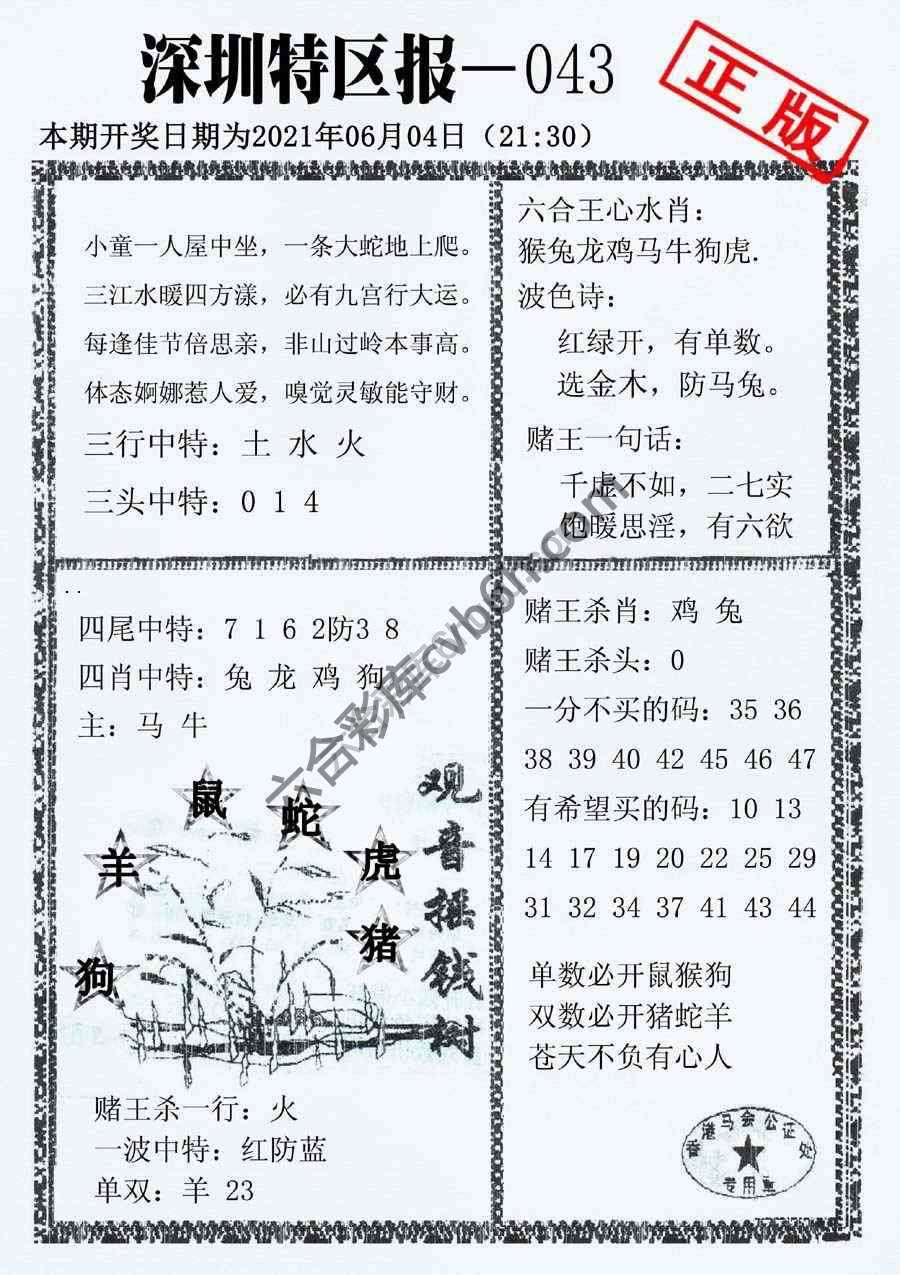 深圳特区报—043
正版
本期开奖日期为2021年06月04日（21:30）
小童一人屋中坐，一条大蛇地上爬。
三江水暖四方漾，必有九宫行大运。
每逢佳节倍思亲，非山过岭本事高。
体态婀娜惹人爱，嗅觉灵敏能守财。
三行中特：土 水 火
三头中特：0 1 4
六合王心水肖：
猴兔龙鸡马牛狗虎.
波色诗：
红绿开，有单数。
选金木，防马兔。
赌王一句话：
千虚不如，二七实
饱暖思淫，有六欲
四尾中特：7 1 6 2防3 8
四肖中特：兔 龙 鸡 狗
主：马 牛
鼠
蛇
羊
虎
猪
狗
观音摇钱树
赌王杀一行：火
一波中特：红防蓝
单双：羊 23
赌王杀肖：鸡 兔
赌王杀头：0
一分不买的码：35 36
38 39 40 42 45 46 47
有希望买的码：10 13
14 17 19 20 22 25 29
31 32 34 37 41 43 44
单数必开鼠猴狗
双数必开猪蛇羊
苍天不负有心人
香港马会公证处
专用章
六合彩库cvb6h.com